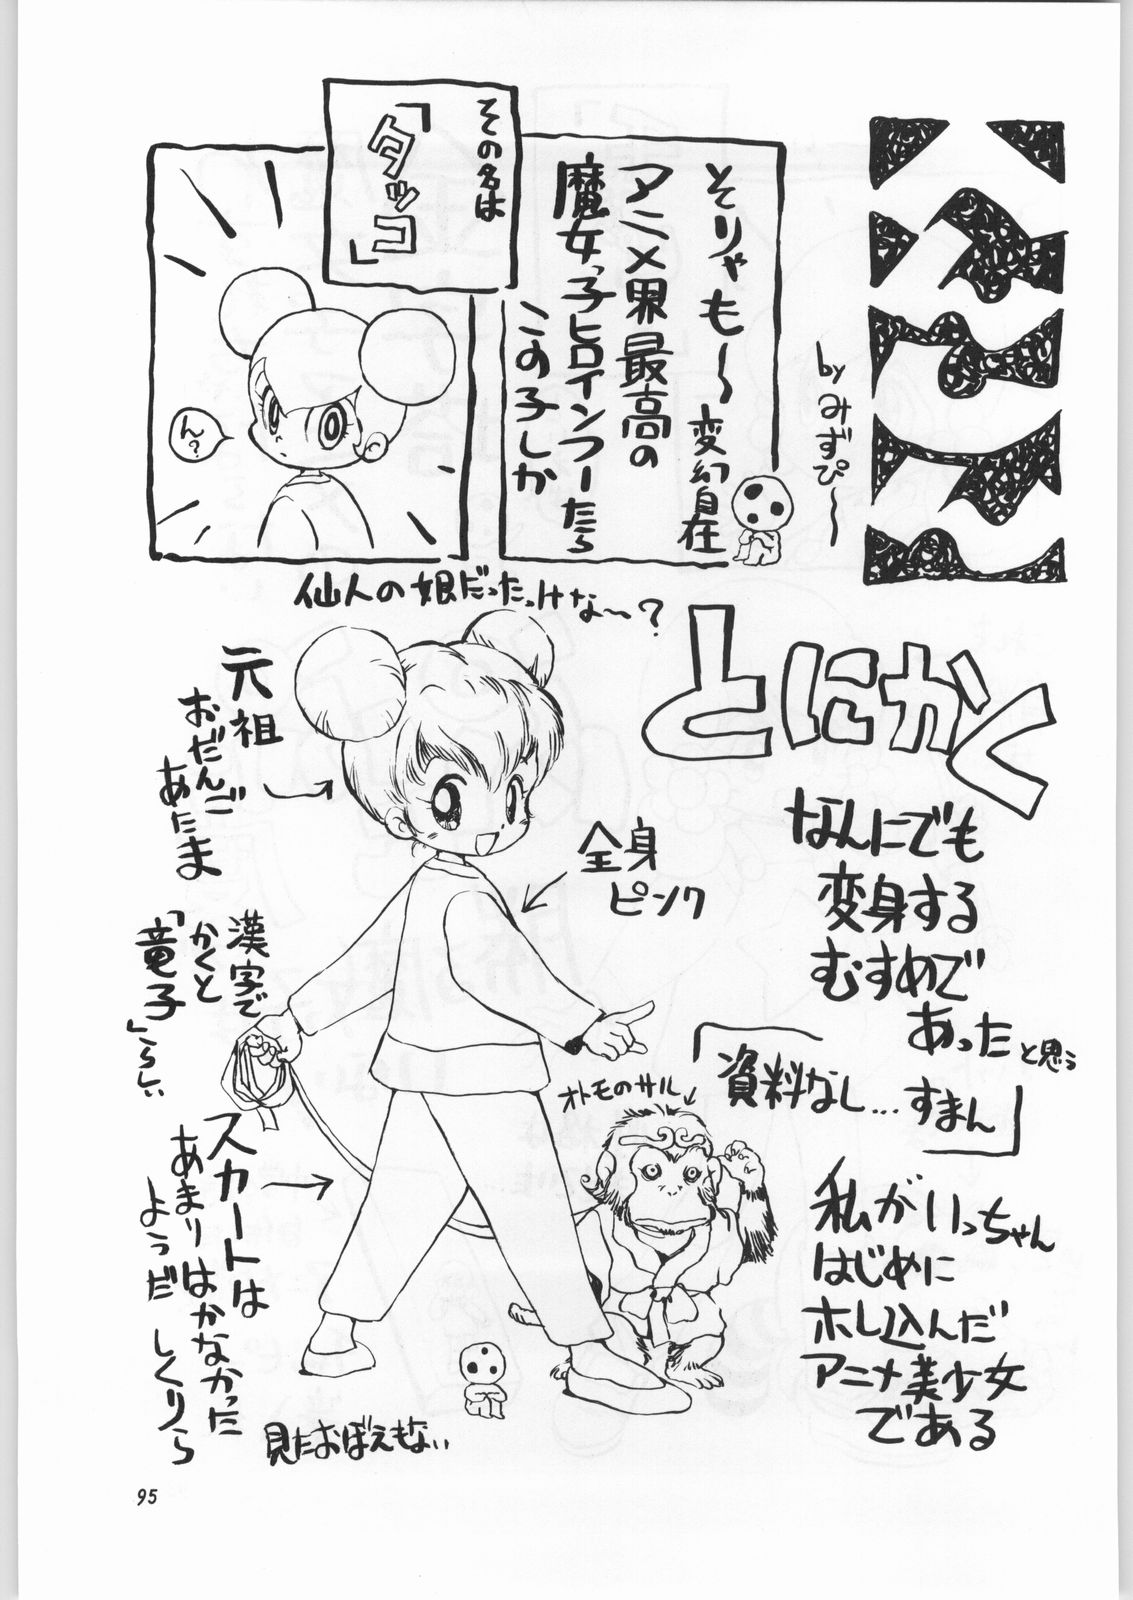 by みずぴ〜
そりゃも〜
変幻自在
アニメ界最高の
魔女っ子ヒロインつーたら
この子しか
その名は
「タッコ」
ん?
仙人の娘だったっけな〜?
とにかく
なんにでも
変身する
むすめで
あったと思う
「資料なし…すまん」
私がいっちゃん
はじめに
ホレ込んだ
アニメ美少女
である
元祖
おだんご
あたま
全身
ピンク
漢字で
かくと
「竜子」らしい
オトモのサル
スカートは
あまりはかなかった
ようだ しくりら
見たおぼえもない
95